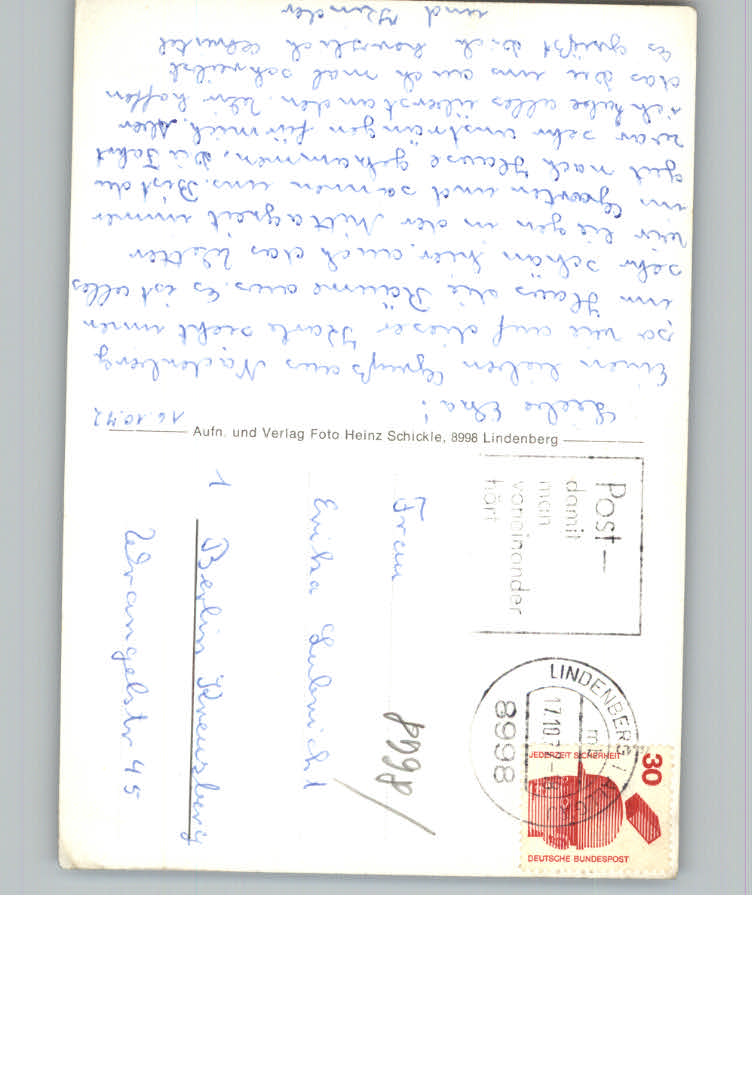 16.10.72
Liebe Elna!
Einen lieben Gruß aus
so wie auf dieser Karte sieht unser
im Haus die Räume aus. Es ist alles
sehr schön hier, auch das Wetter
wir liegen in der Mittagzeit immer
im Garten und sonnen uns. Bist du
gut nach Hause gekommen, die Fahrt
war sehr ansträngen für mich. Aber
ich habe alles überstanden. Wir hoffen
das Du uns auch mal schreibst
Es grüßt Dich herzlich
und Kinder
Aufn. und Verlag Foto Heinz Schickle, 8998 Lindenberg
Post—
damit
man
voneinander
hört
LINDENBERG
17.10.7
8998
30
JEDERZEIT SICHERHEIT
DEUTSCHE BUNDESPOST
Frau
Erika
1 Berlin Kreuzberg
Wrangelstr 45
8998